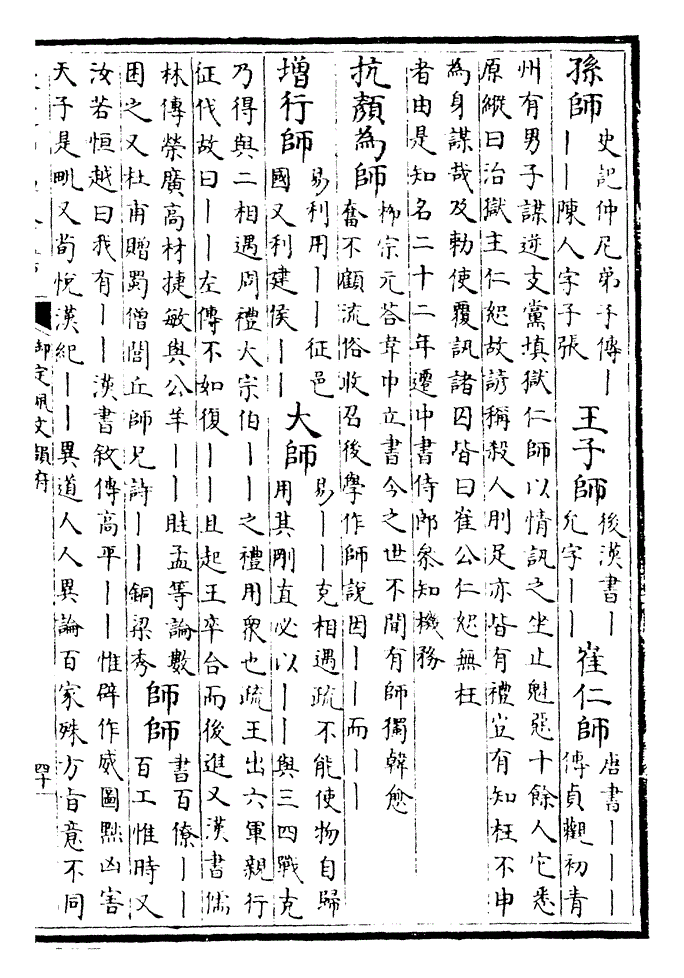 孫師
史記仲尼弟子傳丨
丨丨陳人字子張
王子師
後漢書丨
允字丨丨
崔仁師
唐書丨丨丨
傳貞觀初青
州有男子謀逆支黨填獄仁師以情訊之坐止魁惡十餘人它悉
原縱曰治獄主仁恕故諺稱殺人刖足亦皆有禮豈有知枉不申
為身謀哉及勅使覆訊諸囚皆曰崔公仁恕無枉
者由是知名二十二年遷中書侍郎叅知機務
抗顏為師
柳宗元荅韋中立書今之世不聞有師獨韓愈
奮不顧流俗收召後學作師說因丨丨而丨丨
增行師
易利用丨丨征邑
國又利建侯丨丨
大師
易丨丨克相遇疏不能使物自歸
用其剛直必以丨丨與三四戰克
乃得與二相遇周禮大宗伯丨丨之禮用衆也疏王出六軍親行
征伐故曰丨丨左傳不如復丨丨且起王卒合而後進又漢書儒
林傳榮廣高材捷敏與公羊丨丨眭孟等論數
困之又杜甫贈蜀僧閭丘師兄詩丨丨銅梁秀
師師
書百僚丨丨
百工惟時又
汝若恒越曰我有丨丨漢書敘傳高平丨丨惟辟作威圖黜凶害
天子是毗又荀悅漢紀丨丨異道人人異論百家殊方旨意不同
御定佩文韻府
四十一